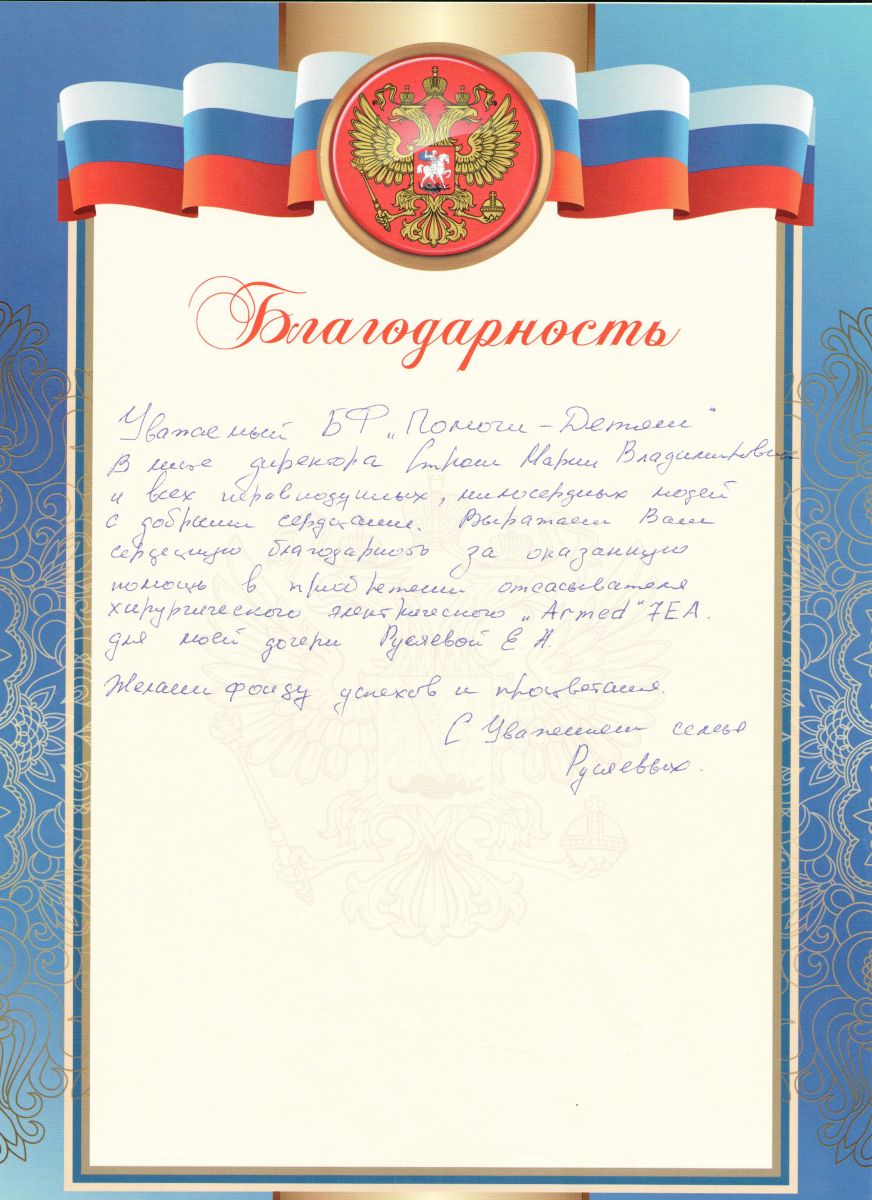 Благодарность
Уважаемый БФ „Помоги-Детям"
В лице директора Строш Марии Владимировны
и всех неравнодушных, милосердных людей
с добрыми сердцами. Выражаем Вам
сердечную благодарность за оказанную
помощь в приобретении отсасывателя
хирургического электрического „Armed" 7EA.
для моей дочери Русяевой Е.А.
Желаем фонду успехов и процветания.
С Уважением семья
Русяеввых.